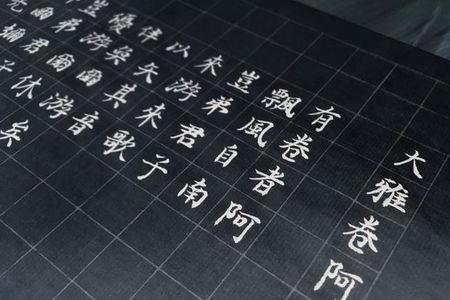 大雅卷阿
有卷者阿
飄風自南
豈弟君子
來游來歌
以矢其音
伴奐爾游矣
優游爾休
豈弟君子
爾彌